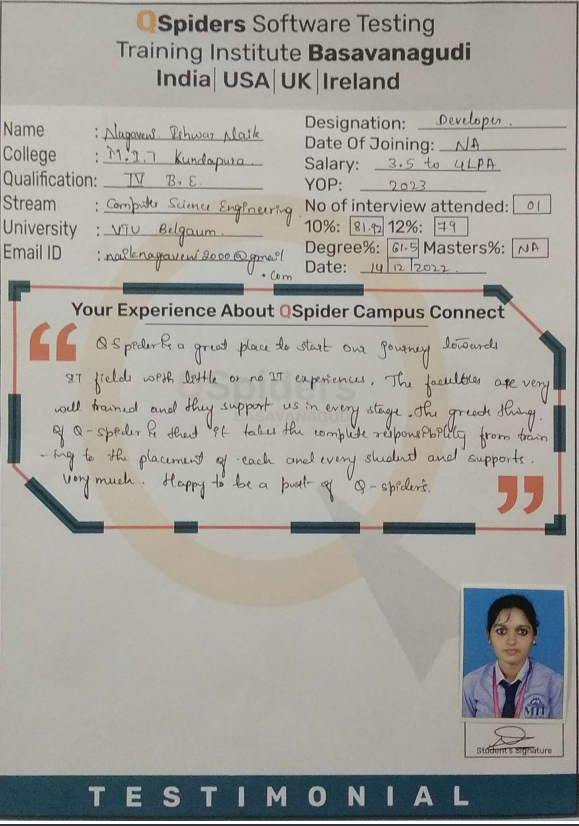 QSpiders Software Testing
Training Institute Basavanagudi
India| USA| UK |Ireland
Name : Nagaveni Ishwar Naik
College : M.I.T Kundapura.
Qualification: IV B.E.
Stream : Computer Science Engineering.
University : VTU Belgaum.
Email ID : naiknagaveni2000@gmail
.com
Designation: Developer.
Date Of Joining: NA
Salary: 3.5 to 4LPA
YOP: 2023
No of interview attended: 01
10%: 81.92 12%: 79
Degree%: 61.5 Masters%: NA
Date: 14/12/2022.
Your Experience About QSpider Campus Connect
“ QSpider is a great place to start our journey towards
IT fields with little or no IT experiences. The faculties are very
well trained and they support us in every stage. The great thing.
of Q-spider is that it takes the complete responsibility from train
-ing to the placement of each and every student and supports.
very much. Happy to be a part of Q-spiders. ”
QSpiders
BASAVANAGUDI
MIT
Student's Signature
TESTIMONIAL